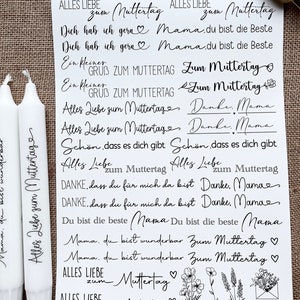 ALLES LIEBE ALLES LIEBE
zum Muttertag zum Muttertag
Dich hab ich gern Mama, du bist die Beste
Dich hab ich gern Mama, du bist die Beste
Ein kleiner
GRUß ZUM MUTTERTAG Zum Muttertag
Ein kleiner
GRUß ZUM MUTTERTAG Zum Muttertag
Alles Liebe zum Muttertag Danke, Mama
Alles Liebe zum Muttertag Danke, Mama
Schön, dass es dich gibt. Schön, dass es dich gibt.
Alles Liebe Alles Liebe
zum Muttertag zum Muttertag
DANKE, dass du für mich da bist Danke, Mama
DANKE, dass du für mich da bist Danke, Mama
Du bist die beste Mama Du bist die beste Mama
Mama, du bist wunderbar Zum Muttertag
Mama, du bist wunderbar Zum Muttertag
ALLES LIEBE
zum Muttertag
ALLES LIEBE
Mama, du bist wunderbar
Alles Liebe zum Muttertag